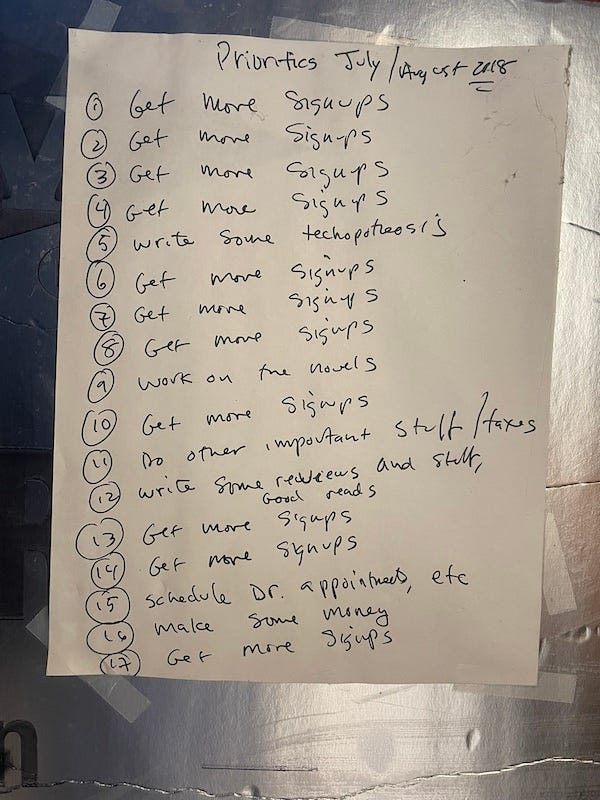 Priorities July/August 2018
1 Get more Signups
2 Get more Signups
3 Get more Signups
4 Get more Signups
5 write some techopotheosis
6 Get more Signups
7 Get more Signups
8 Get more Signups
9 work on the novels
10 Get more Signups
11 Do other important stuff/taxes
12 write some reviews and stuff,
Good reads
13 Get more Signups
14 Get more Signups
15 schedule Dr. appointments, etc
16 make some money
17 Get more Signups